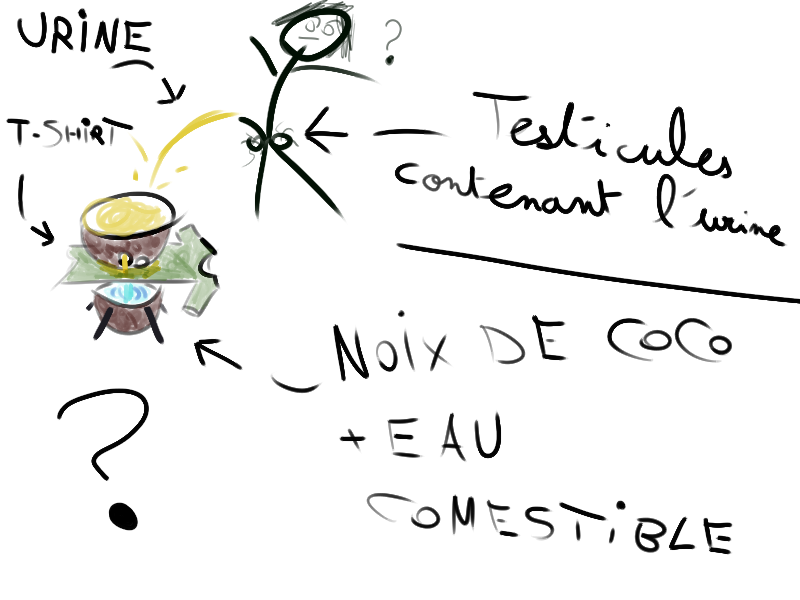 URINE
?
T-SHIRT
Testicules
contenant l'urine
NOIX DE COCO
+ EAU
COMESTIBLE
?